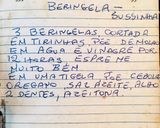 BERINGELA-
SUSSINHA
3 BERINGELAS, CORTADA
EM TIRINHAS, POE DE MOLHO
EM ÁGUA E VINAGRE POR
12 HORAS, ESPREME
MUITO BEM.
EM UMA TIGELA POE CEBOLA
OREGANO, SAL, AZEITE, ALHO
2 DENTES, AZEITONA.